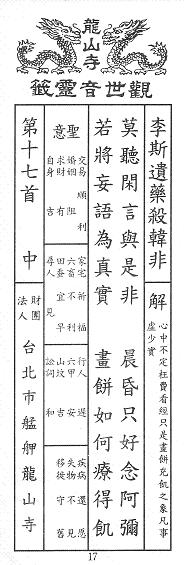 龍山寺
觀世音靈籤
李斯遺藥殺韓非
解
心中不定枉費看經只是畫餅充飢之象凡事
虛少實
莫聽閑言與是非　晨昏只好念阿彌
若將妄語為真實　畫餅如何療得飢
聖意
交易　順利
婚姻　阻
求財　有
自身　吉
家宅　祈福
六畜　不利
田蚕　宜早
尋人　見
行人　遲
六甲　安
山墳　吉
訟詞　和
疾病　還愿
失物　不見
移徙　守舊
第十七首　中
財團
法人
台北市艋舺龍山寺
17